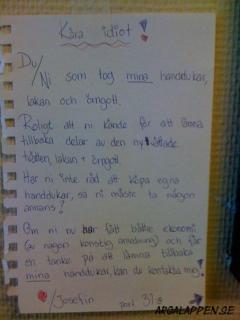 Kära idiot!
Du/
Ni som tog mina handdukar,
lakan och örngott.
Roligt att ni kände för att lämna
tillbaka delar av den nytvättade
tvätten, lakan + örngott.
Har ni inte råd att köpa egna
handdukar, så ni måste ta någon
annans?
Om ni nu har fått bättre ekonomi
(av någon konstig anledning) och får
en tanke på att lämna tillbaka
mina handdukar, kan de kontakta mej!
/Josefin port 31:a
ARGALAPPEN.SE